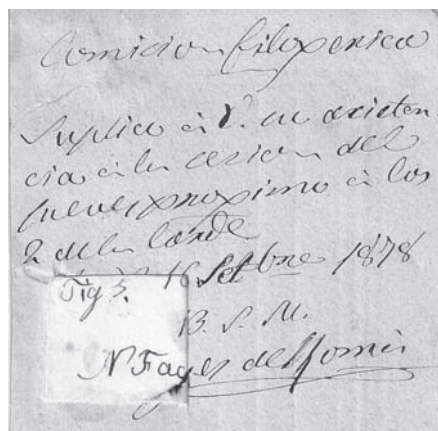 Comicion filoxerica
Suplica á V. su asisten
cia á la cesion del
jueves proximo á los
2 de la tarde
16 Setbre 1878
Fig 5.
B. S. M.
N Fages de Romà